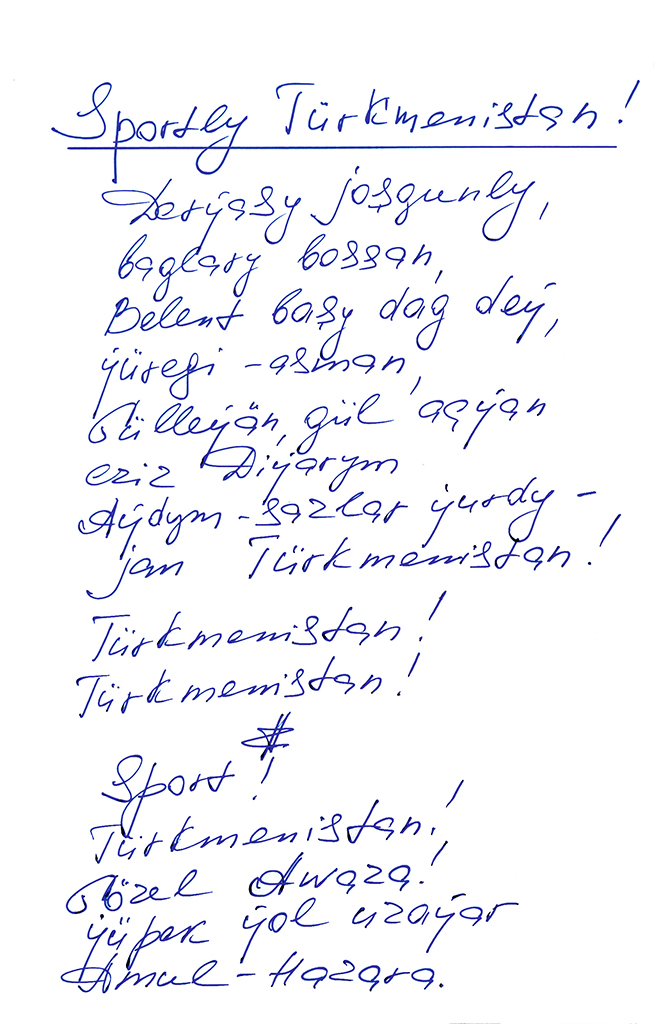 Sportly Türkmenistan!
Derýasy joşgunly,
baglary bossan,
Belent başy dag deý,
ýüregi - asman,
Gülleýän, gül açýan
eziz Diýarym
Aýdym-sazlar ýurdy -
jan Türkmenistan!
Türkmenistan!
Türkmenistan!
*
Sport!
Türkmenistan!
Gözel Awaza!
ýüpek ýol uzaýar
Amul-Hazara.